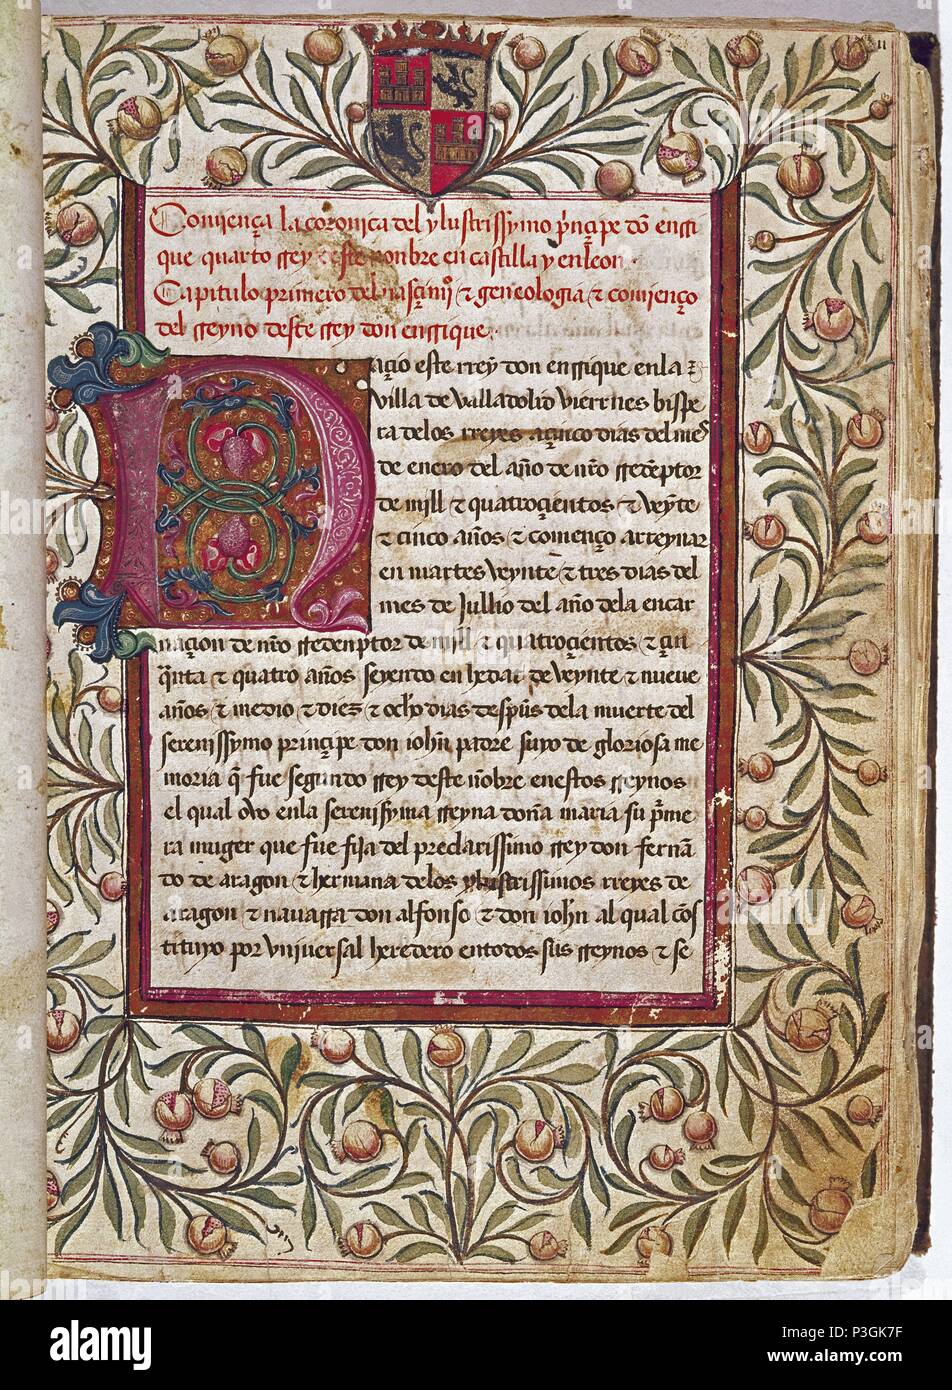 11
Comiença la coronica del ylustrissymo prinçipe don enrri
que quarto rrey deste nonbre en castilla y en leon
Capitulo primero del nasçimi° & geneologia & comienço
del rreyno deste rrey don enrrique
Naçio este rrey don enrrique en la
villa de valladolid viernes bispe
ra de los rreyes a çinco dias del mes
de enero del año de nro rredenptor
de mill & quatroçientos & veynte
& cinco años & començo a rreynar
en martes veynte & tres dias del
mes de jullio del año de la encar
naçion de nro rredenptor de mill & quatroçientos & çin
qnta & quatro años seyendo en hedat de veynte & nueve
años & medio & diez & ocho dias despues de la muerte del
serenissymo prinçipe don iohn padre suyo de gloriosa me
moria q fue segundo rrey deste nonbre en estos rreynos
el qual ovo en la serenissyma rreyna doña maria su prime
ra muger que fue fija del preclarissimo rrey don fernan
do de aragon & hermana de los ylustrissimos rreyes de
aragon & navarra don alfonso & don iohn al qual cos
tituyo por universal heredero en todos sus rreynos & se
alamy
alamy
Image ID: P3GK7F
www.alamy.com